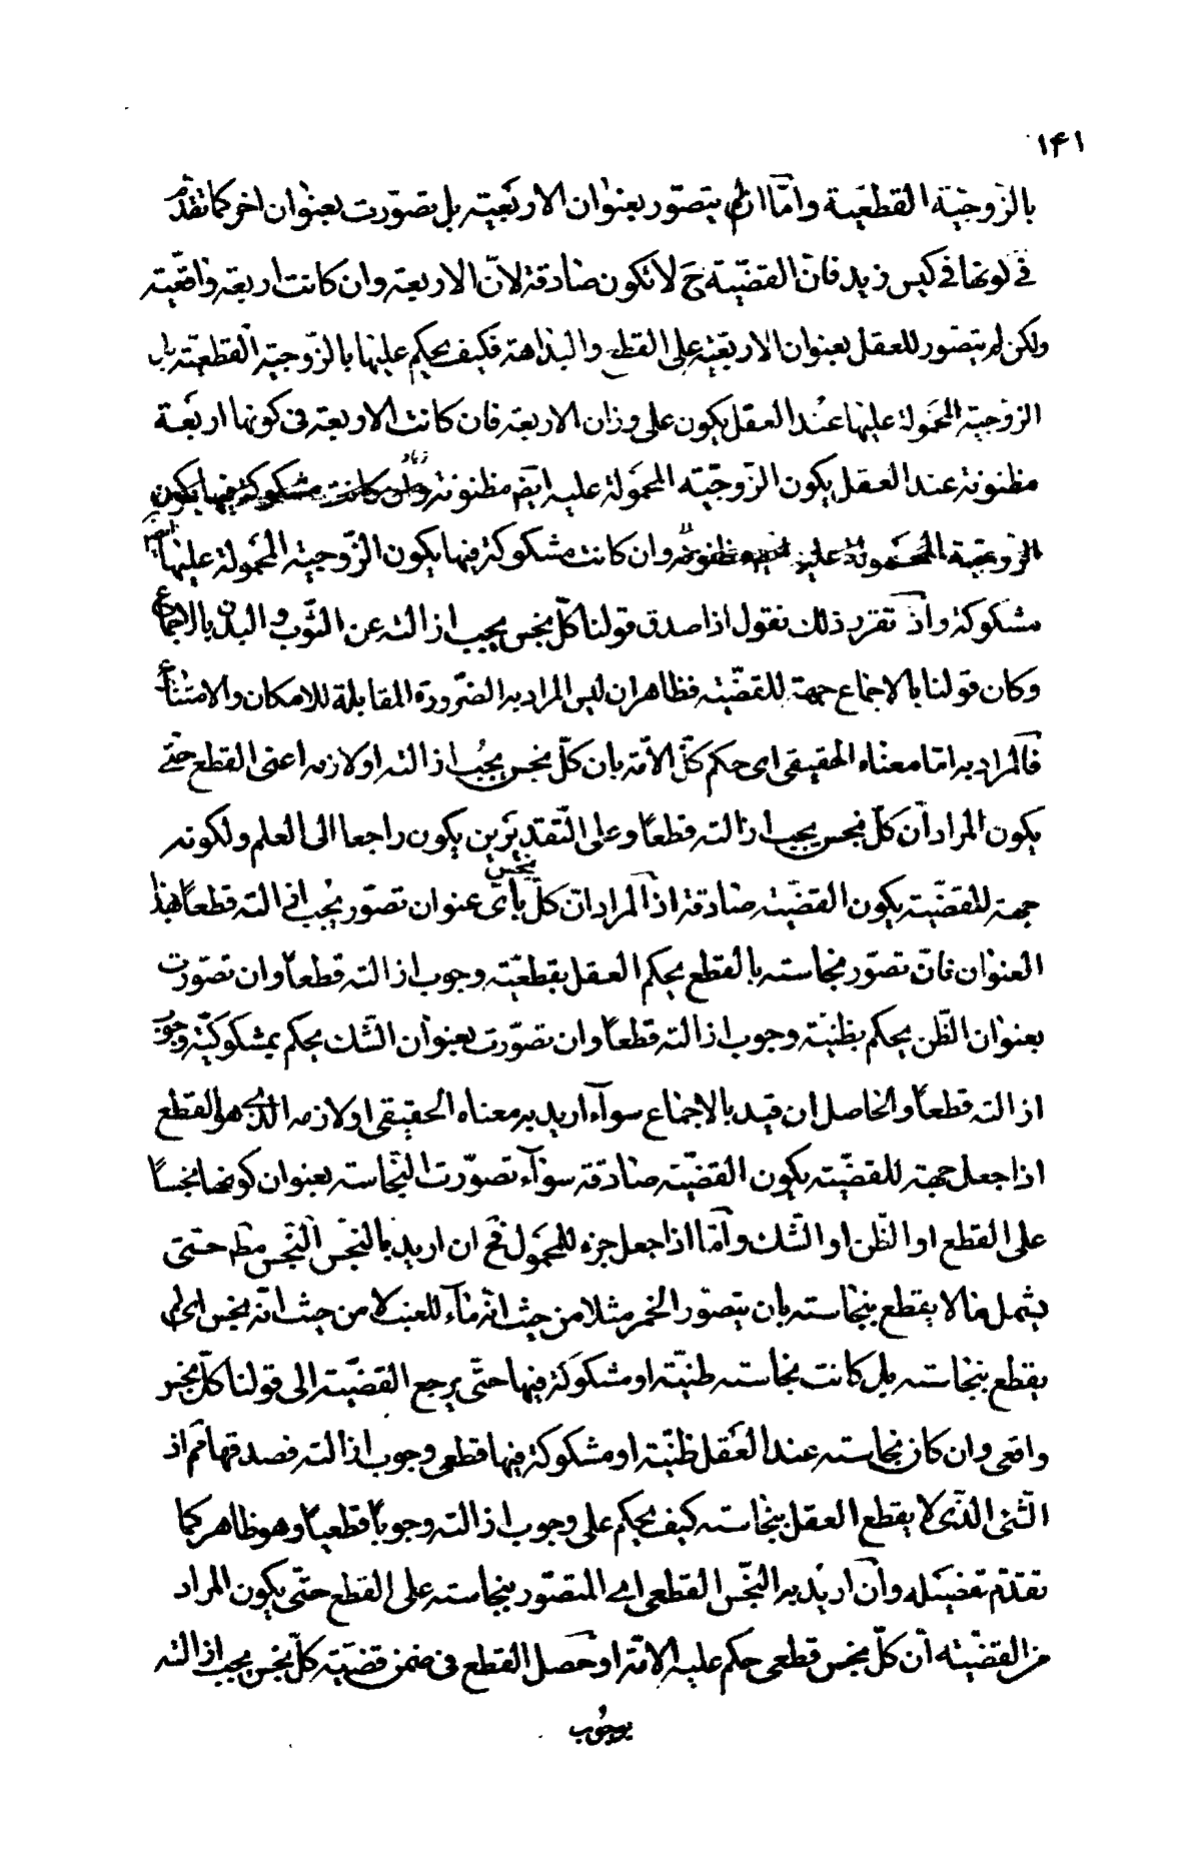 ۱۴۱
بالزوجيّة القطعيّة وامّا ان لم يتصوّر بعنوان الاربعيّة بل تصوّرت بعنوان اخر كما تقدّم
فى كونها فى كيس زيد فانّ القضيّة ح لا تكون صادقة لانّ الاربعة وان كانت اربعة واقعيّة
ولكن لم يتصّور للعقل بعنوان الاربعيّة على القطع والبداهة فكيف يحكم عليها بالزّوجيّة القطعيّة بل
الزوجيّة المحمولة عليها عند العقل يكون على وزان الاربعة فان كانت الاربعة فى كونها اربعة
مظنونة عند العقل يكون الزّوجيّة المحمولة عليه ايضم مظنونة ولو كانت مشكوكة فيها يكون
الزوجيّة المحمولة عليه ايضم مظنونة وان كانت مشكوكة فيها يكون الزّوجيّة المحمولة عليها ايضم
مشكوكة واذ تقرر ذلك نقول اذا صدق قولنا كلّ نجس يجب ازالته عن الثّوب والبدن بالاجماع
وكان قولنا بالاجماع جهة للقضيّة فظاهر ان ليس المراد به الضّرورة المقابلة للامكان والامتناع
فالمراد به امّا معناه الحقيقى اى حكم كلّ الامّة بان كلّ نجس يجب ازالته او لازمه اعنى القطع حتّى
يكون المراد انّ كلّ نجس يجب ازالته قطعاً وعلى التّقديرين يكون راجعا الى العلم ولكونه
جهة للقضيّة يكون القضيّة صادقة اذ المراد انّ كلّ نجس باىّ عنوان تصوّر يجب ازالته قطعاً بهذا
العنوان فان تصوّر نجاسته بالقطع يحكم العقل بقطعيّة وجوب ازالته قطعاً وان تصوّرت
بعنوان الظّن يحكم بظنيّة وجوب ازالته قطعاً وان تصوّرت بعنوان الشّك يحكم بمشكوكيّة وجوب
ازالته قطعاً والحاصل ان قيد بالاجماع سوآء اريد به معناه الحقيقى او لازمه الذى هو القطع
اذا جعل جهة للقضيّة يكون القضيّة صادقة سوآء تصوّرت النّجاسة بعنوان كونها نجساً
على القطع او الظّن او الشّك وامّا اذا جعل جزء للمحمول فح ان اريد بالنجس النّجس مط حتى
يشمل ما لا يقطع بنجاسته بان يتصوّر الخمر مثلا من حيث انّه مآء للعنب لا من حيث انّه نجس اى لم
يقطع بنجاسته بل كانت نجاسته ظنيّة او مشكوكة فيها حتّى يرجع القضيّة الى قولنا كلّ نجس
واقعى وان كان نجاسته عند العقل ظنيّة او مشكوكة فيها قطعى وجوب ازالته فصدقها مم اذ
الشّئ الذّى لا يقطع العقل بنجاسته كيف يحكم على وجوب ازالته وجوباً قطعياً وهو ظاهر كما
تقدّم تفصيله وان اريد به النّجس القطعى اى المتصّور بنجاسته على القطع حتّى يكون المراد
من القضيّة انّ كلّ نجس قطعى حكم عليه الامّة او حصل القطع فى ضمن قضيّة كلّ نجس يجب ازالته
بوجوب